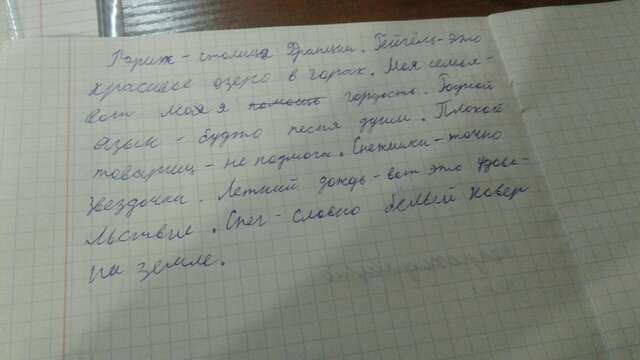 Париж - столица Франции. Гейгёль - это
красивое озеро в горах. Моя семья -
вот моя я гордость. Родной
язык - будто песня души. Плохой
товарищ - не подмога. Снежинки - точно
звездочки. Летний дождь - вот это удово-
льствие. Снег - словно белый ковер
на земле.